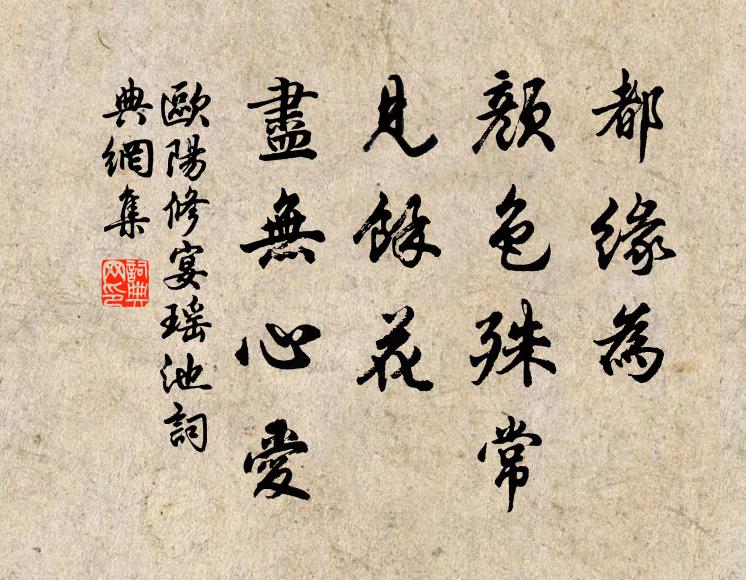 都緣為
顏色殊常
見餘花
盡無心愛
歐陽修宴瑶池詞
典網集
詞典網印